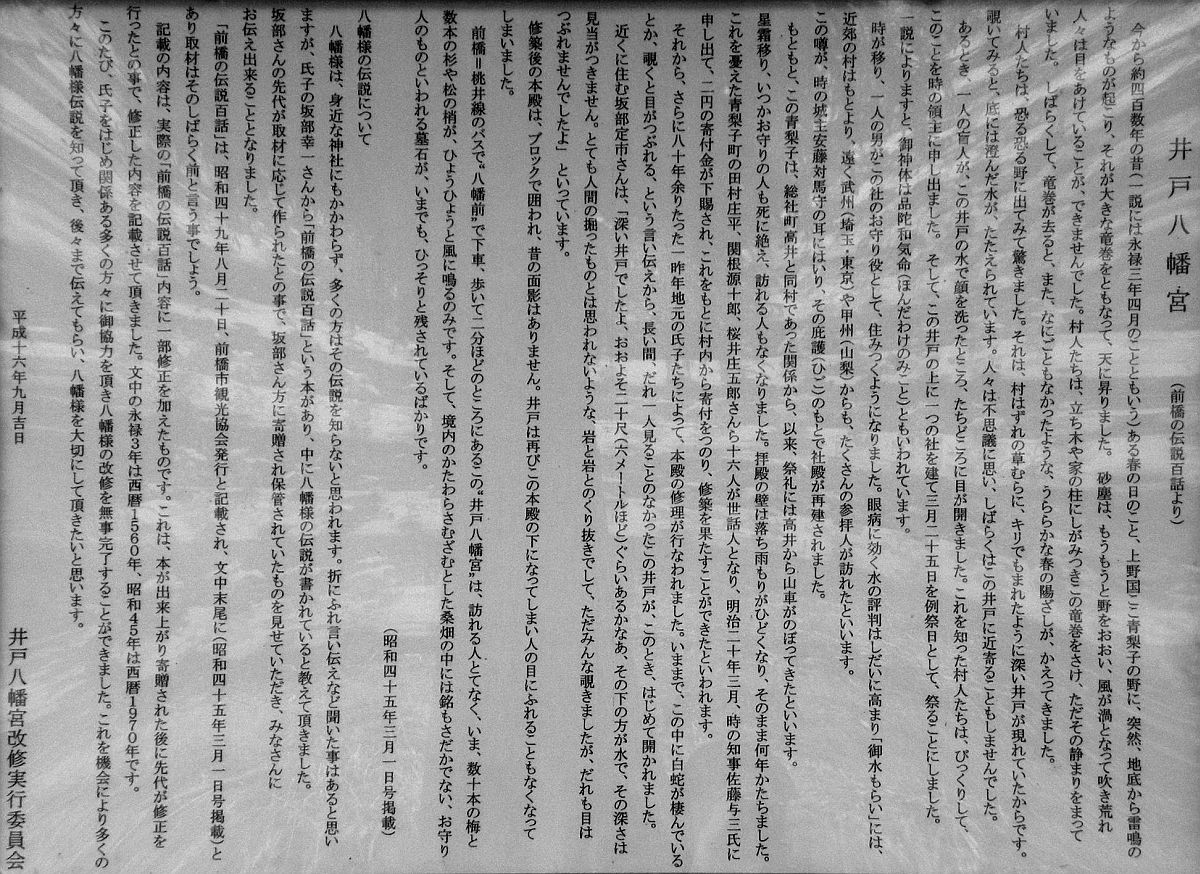 井戸八幡宮　（前橋の伝説百話より）
今から約四百数年の昔（一説には永禄三年四月のことともいう）ある春の日のこと、上野国ここ青梨子の野に、突然、地底から雷鳴の
ようなものが起こり、それが大きな竜巻をともなって、天に昇りました。　砂塵は、もうもうと野をおおい、風が渦となって吹き荒れ
人々は目をあけていることが、できませんでした。村人たちは、立ち木や家の柱にしがみつきこの竜巻をさけ、ただその静まりをまって
いました。　しばらくして、竜巻が去ると、また、なにごともなかったような、うららかな春の陽ざしが、かえってきました。
村人たちは、恐る恐る野に出てみて驚きました。それは、村はずれの草むらに、キリでもまれたように深い井戸が現れていたからです。
覗いてみると、底には澄んだ水が、たたえられています。人々は不思議に思い、しばらくはこの井戸に近寄ることもしませんでした。
あるとき、一人の盲人が、この井戸の水で顔を洗ったところ、たちどころに目が開きました。これを知った村人たちは、びっくりして、
このことを時の領主に申し出ました。そして、この井戸の上に一つの社を建て三月二十五日を例祭日として、祭ることにしました。
一説によりますと、御神体は品陀和気命（ほんだわけのみこと）ともいわれています。
時が移り、一人の男がこの社のお守り役として、住みつくようになりました。眼病に効く水の評判はしだいに高まり「御水もらい」には、
近郊の村はもとより、遠く武州（埼玉・東京）や甲州（山梨）からも、たくさんの参拝人が訪れたといいます。
この噂が、時の城主安藤対馬守の耳にはいり、その庇護（ひご）のもとで社殿が再建されました。
もともと、この青梨子は、総社町高井と同村であった関係から、以来、祭礼には高井から山車がのぼってきたといいます。
星霜移り、いつかお守りの人も死に絶え、訪れる人もなくなりました。拝殿の壁は落ち雨もりがひどくなり、そのまま何年かたちました。
これを憂えた青梨子町の田村庄平、関根源十郎、桜井庄五郎さんら十六人が世話人となり、明治二十年三月、時の知事佐藤与三氏に
申し出て、二円の寄付金が下賜され、これをもとに村内から寄付をつのり、修築を果たすことができたといわれます。
それから、さらに八十年余りたった一昨年地元の氏子たちによって、本殿の修理が行なわれました。いままで、この中に白蛇が棲んでいる
とか、覗くと目がつぶれる、という言い伝えから、長い間、だれ一人見ることのなかったこの井戸が、このとき、はじめて開かれました。
近くに住む坂部定市さんは、「深い井戸でしたよ、おおよそ二十尺（六メートルほど）ぐらいあるかなあ、その下の方が水で、その深さは
見当がつきません。とても人間の掘ったものとは思われないような、岩と岩とのくり抜きでして、ただみんな覗きましたが、だれも目は
つぶれませんでしたよ」といっています。
修築後の本殿は、ブロックで囲われ、昔の面影はありません。井戸は再びこの本殿の下になってしまい人の目にふれることもなくなって
しまいました。
前橋＝桃井線のバスで“八幡前”で下車、歩いて二分ほどのところにあるこの“井戸八幡宮”は、訪れる人とてなく、いま、数十本の梅と
数本の杉や松の梢が、ひょうひょうと風に鳴るのみです。そして、境内のかたわらさむざむとした桑畑の中には銘もさだかでない、お守り
人のものといわれる墓石が、いまでも、ひっそりと残されているばかりです。
（昭和四十五年三月一日号掲載）
八幡様の伝説について
八幡様は、身近な神社にもかかわらず、多くの方はその伝説を知らないと思われます。折にふれ言い伝えなど聞いた事はあると思い
ますが、氏子の坂部幸一さんから「前橋の伝説百話」という本があり、中に八幡様の伝説が書かれていると教えて頂きました。
坂部さんの先代が取材に応じて作られたとの事で、坂部さん方に寄贈され保管されていたものを見せていただき、みなさんに
お伝え出来ることとなりました。
「前橋の伝説百話」は、昭和四十九年八月二十日、前橋市観光協会発行と記載され、文中末尾に（昭和四十五年三月一日号掲載）と
あり取材はそのしばらく前と言う事でしょう。
記載の内容は、実際の「前橋の伝説百話」内容に一部修正を加えたものです。これは、本が出来上がり寄贈された後に先代が修正を
行ったとの事で、修正した内容を記載させて頂きました。文中の永禄３年は西暦１５６０年、昭和４５年は西暦１９７０年です。
このたび、氏子をはじめ関係ある多くの方々に御協力を頂き八幡様の改修を無事完了することができました。これを機会により多くの
方々に八幡様伝説を知って頂き、後々まで伝えてもらい、八幡様を大切にして頂きたいと思います。
平成十六年九月吉日
井戸八幡宮改修実行委員会